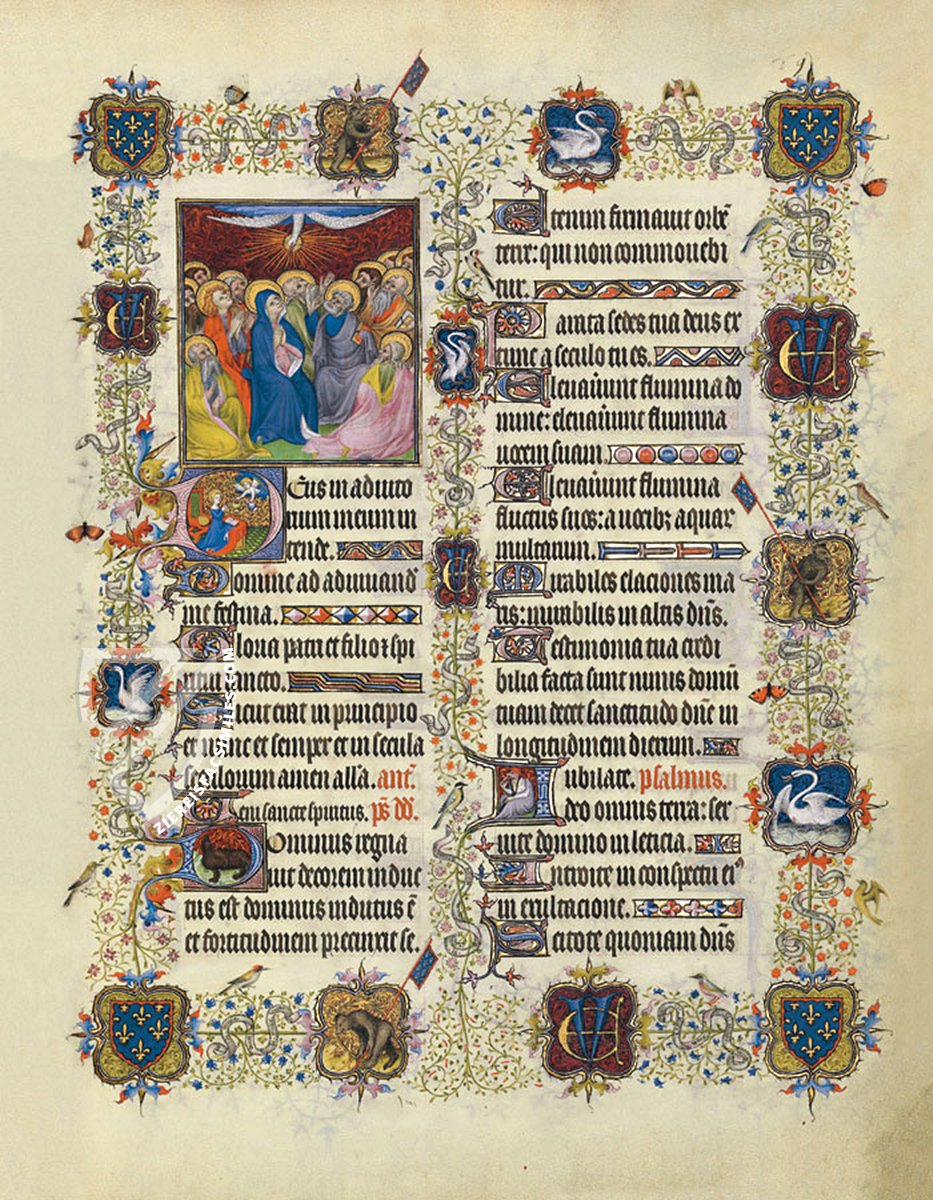 Deus in adiuto
rium meum in
tende.
Domine ad adiuuand̄
me festina.
Gloria patri et filio ⁊ spi
ritui sancto.
Sicut erat in principio
et nunc et semper et in secula
seculorum amen all̄a. ant̄.
Veni sancte spiritus. p̄s dd̄.
Dominus regna
uit decorem induc
tus est dominus indutus ē
et fortitudinem precinxit se.
Etenim firmauit orbē
terre: qui non commouebi
tur.
Parata sedes tua deus ex
tunc a seculo tu es.
Eleuauerūnt flumina do
mine: eleuauerūnt flumina
uocem suam.
Eleuauerūnt flumina
fluctus suos: a uocibꝫ aquar̄
multarum.
Mirabiles elaciones ma
ris: mirabilis in altis dn̄s.
Testimonia tua credi
bilia facta sunt nimis domū
tuam decet sanctitudo dn̄e in
longitudinem dierum.
Iubilate. psalmus.
deo omnis terra: ser
uite domino in leticia.
Introite in conspectu eiꝰ
in exultacione.
Scitote quoniam dn̄s
ZIEREIS FACSIMILES.COM